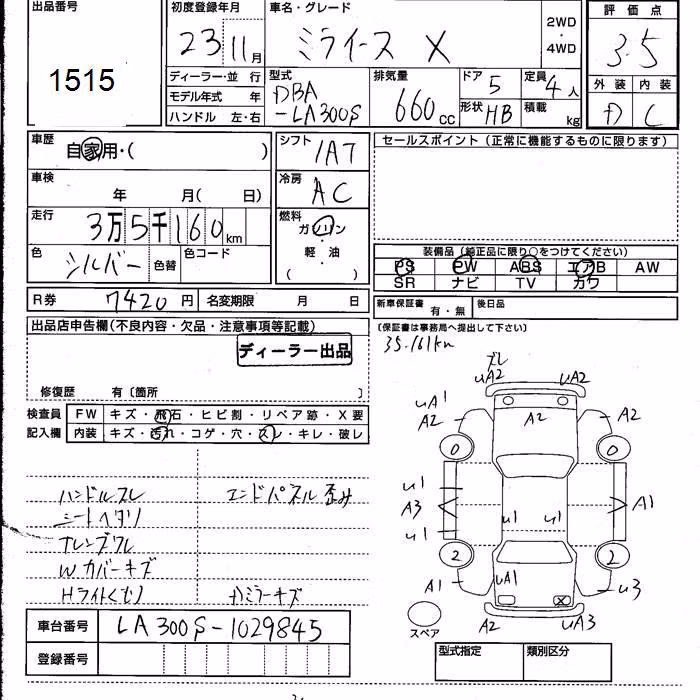 出品番号
1515
初度登録年月
23 11月
車名・グレード
ミライース X
2WD
・
4WD
評価点
3.5
外装 内装
D C
ディーラー・並 行
モデル年式 年
ハンドル 左・右
型式
DBA
-LA300S
排気量
660cc
ドア 5
形状 HB
定員 4人
積載 kg
車歴
自家用・( )
車検
年 月( 日)
走行
3万5千160km
色 シルバー 色替 色コード
R券 7420円 名変期限 月 日
シフト
IAT
冷房
AC
燃料
ガソリン
・
軽・油
( )
セールスポイント(正常に機能するものに限ります)
装備品(純正品に限り○をつけてください)
PS PW ABS エアB AW
SR ナビ TV カワ
新車保証書 有・無 後日品
(保証書は事務局へ提出して下さい)
35.161km
出品店申告欄(不良内容・欠品・注意事項等記載)
ディーラー出品
修復歴 有〔箇所 〕
検査員
記入欄
FW キズ・飛石・ヒビ割・リペア跡・X要
内装 キズ・汚れ・コゲ・穴・スレ・キレ・破レ
ハンドルスレ エンドパネル歪み
シートヘタリ
Wカバーキズ
Hライトくもり Dミラーキズ
車台番号 LA300S-1029845
登録番号
ズレ
uA2 uA2
uA1
A2 A2 A2
0 0
u1
A3 A1
u1 u1 u1
2 2
A1 uA1 u3
X
A2 uA3
スペア
型式指定 類別区分